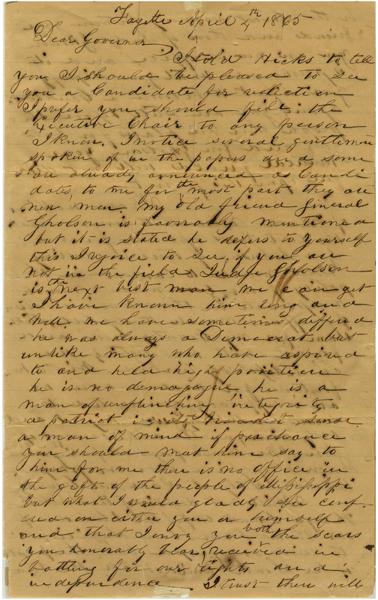 Fayette April 4th 1865
Dear Governor
I told Hicks to tell
you I should be pleased to see
you a Candidate for reelection
I prefer you should fill the
Executive Chair to any person
I know. I notice several gentlemen
spoken of in the papers and some
are already announced as Candi
dates, to me for the most part they are
new men, my old friend General
Gholson is favorably mentioned
but it is stated he defers to yourself
this I rejoice to see, if you are
not in the field Judge Gholson
is the next best man we can get
I have known him long and
well. we have sometimes differed
he was always a Democrat but
unlike many who have aspired
to and held high positions
he is no demagogue he is a
man of unflinching integrity
a patriot in the strictest sense
a man of mind if perchance
you should meet him say to
him for me there is no office in
the gift of the people of Mississippi
but what I would gladly see conf
ered on either you or himself
and that I envy you both the scars
you honorably bear, received in
battling for our rights and
independence I trust there will